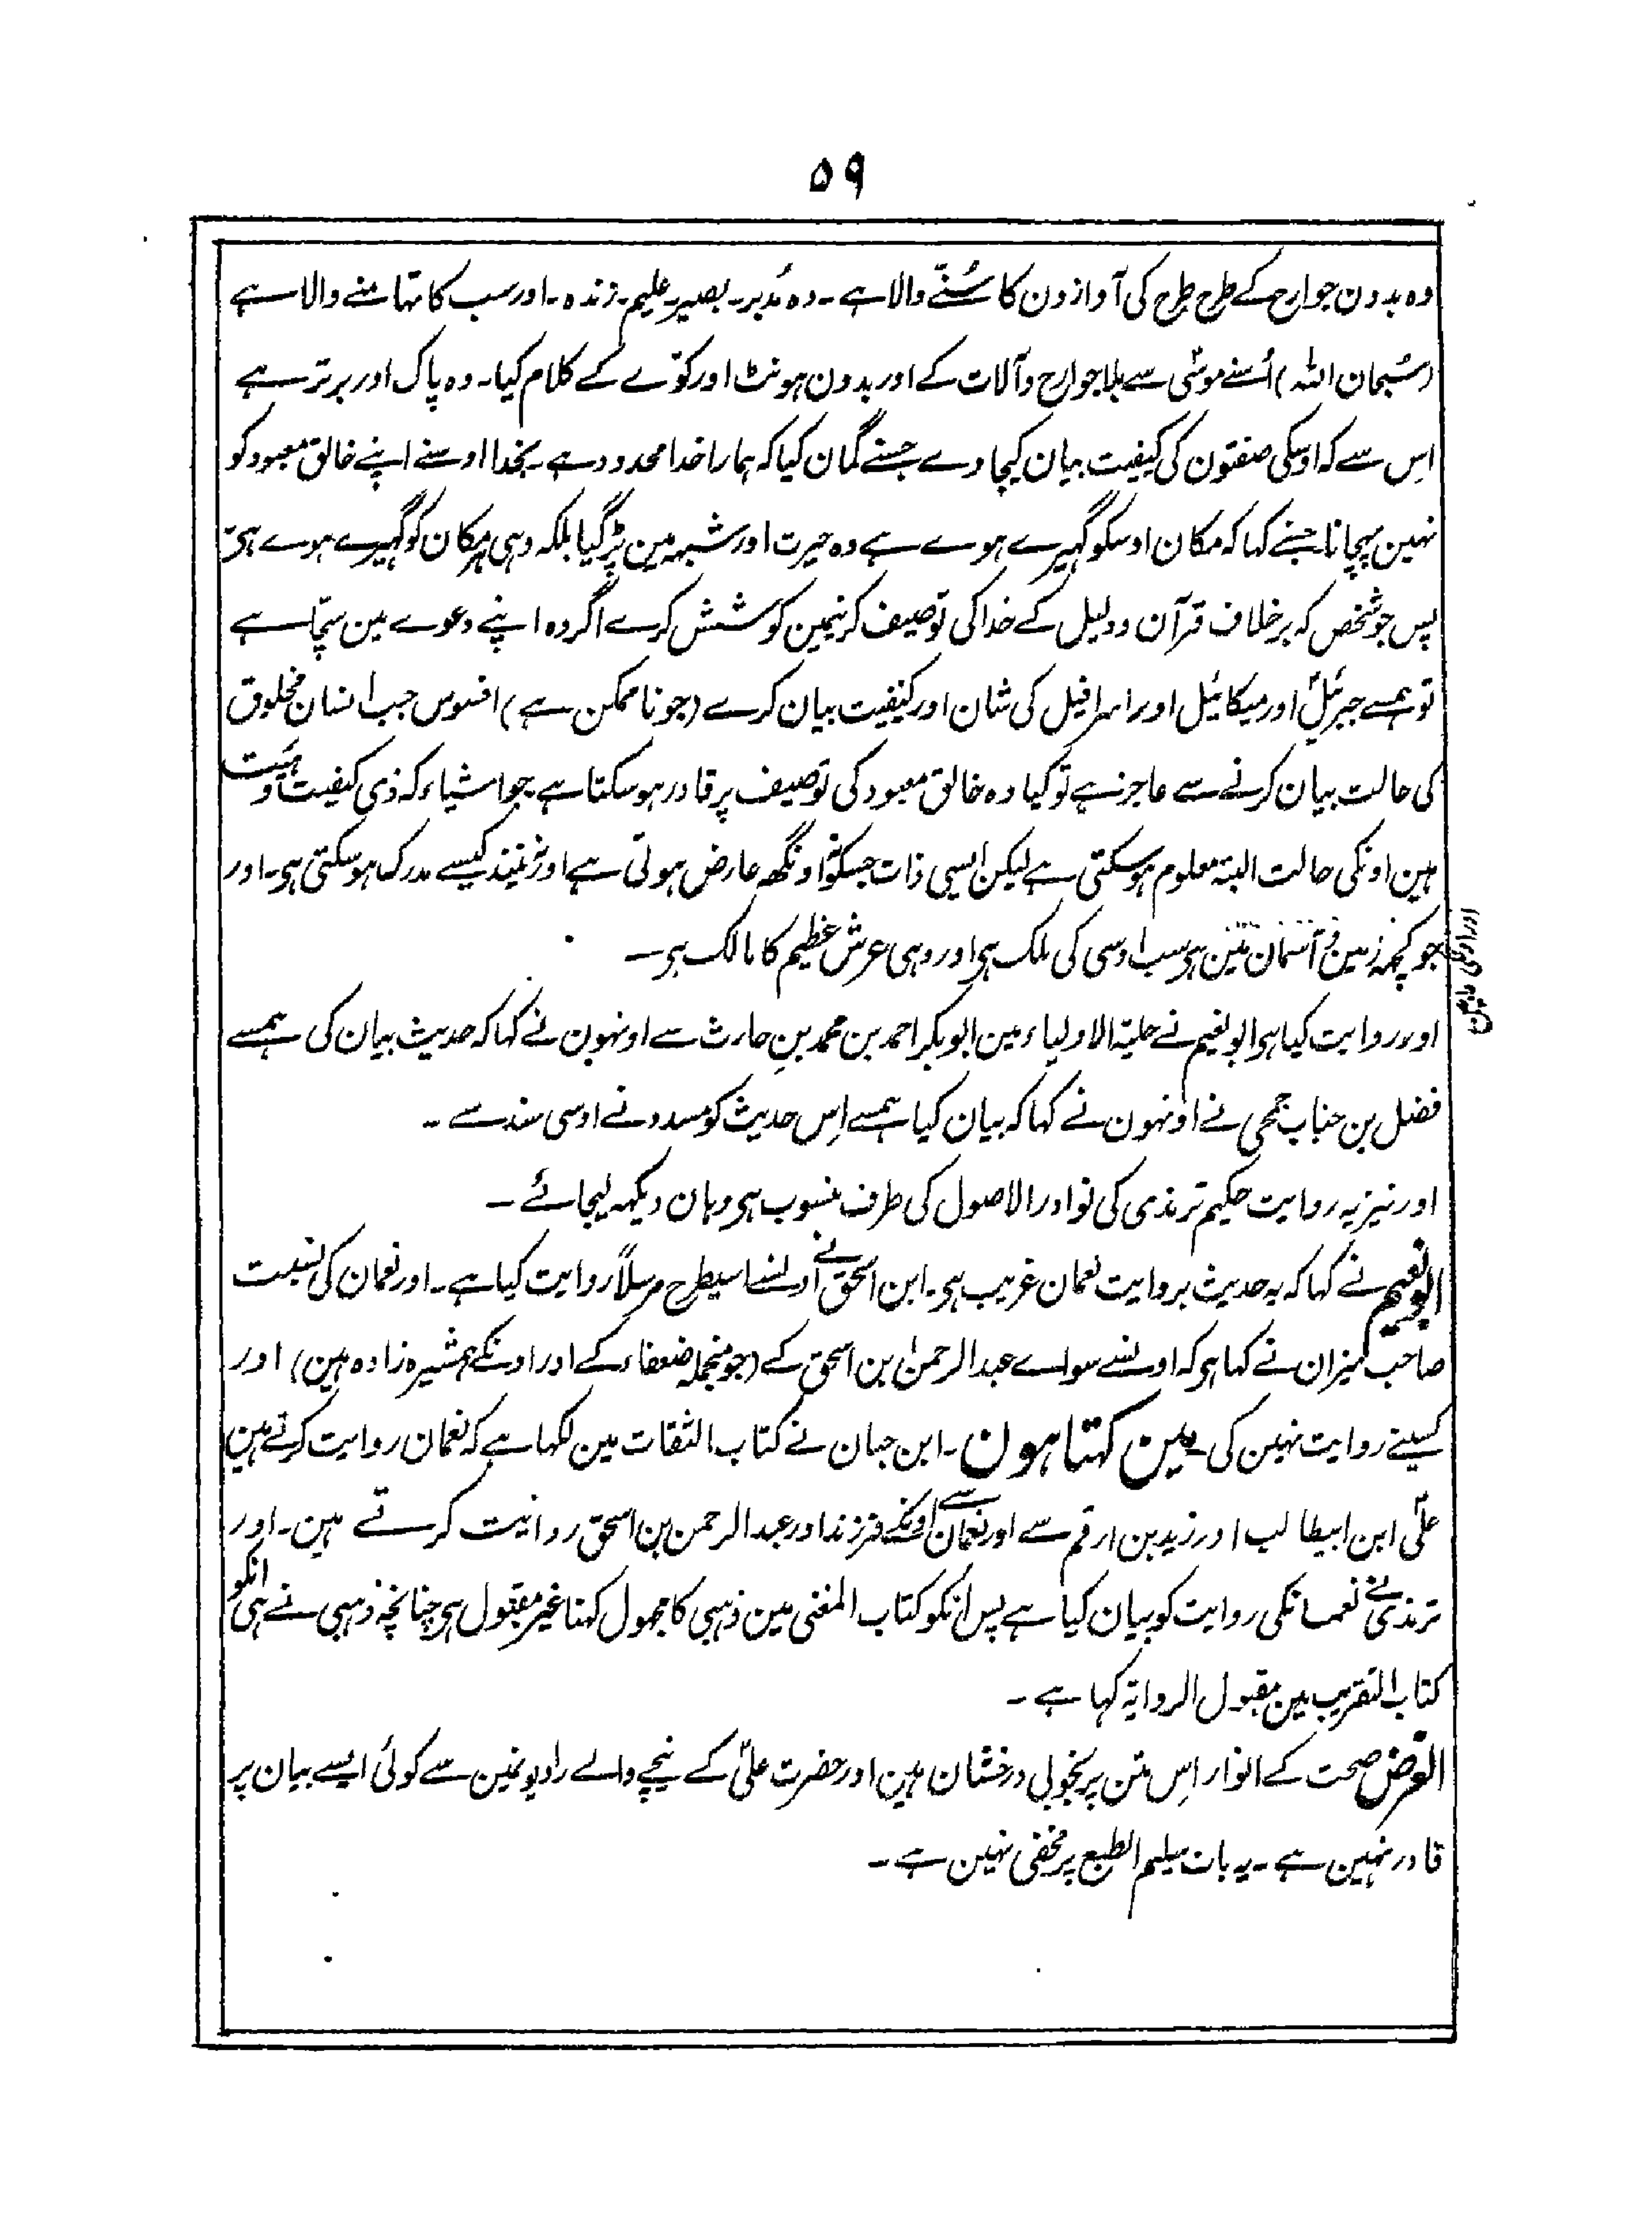 ۵۹
وہ بدون جوارح کے طرح طرح کی آوازون کا سُننے والا ہے ۔ وہ مُدبر۔ بصیر۔ علیم۔ زندہ ۔ اور سب کا تہامنے والا ہے
(سُبحان اللہ) اُسنے موسٰی سے بلا جوارح وآلات کے اور بدون ہونٹ اور کوّے کے کلام کیا۔ وہ پاک اور برتر ہے
اِس سے کہ اوسکی صفتون کی کیفیت بیان کیجاوے جسنے گمان کیا کہ ہمارا خدا محدود ہے بخدا اوسنے اپنے خالق معبود کو
نہین پہچانا جسنے کہا کہ مکان اوسکو گہیرے ہوے ہے وہ حیرت اور شبہہ مین پڑگیا بلکہ وہی ہر مکان کو گہیرے ہوے ہی
پس جو شخص کہ برخلاف قرآن ودلیل کے خدا کی توصیف کرنیمین کوشش کرے اگر وہ اپنے دعوے مین سچّا ہے
تو ہمسے جبرئیلؑ اور میکائیل اور اسرافیل کی شان اور کیفیت بیان کرے (جو ناممکن ہے) افسوس جب انسان مخلوق
کی حالت بیان کرنے سے عاجز ہے تو کیا وہ خالق معبود کی توصیف پر قادر ہوسکتا ہے جو اشیاء کہ ذی کیفیت وہئیت
ہین اونکی حالت البتہ معلوم ہوسکتی ہے لیکن ایسی ذات جسکو نہ اونگھ عارض ہوتی ہے اور نہ نیند کیسے مدرک ہوسکتی ہی۔ اور
جو کچہہ زمین و آسمان مین ہی سب اوسی کی ملک ہی اور وہی عرش عظیم کا مالک ہی ۔
اور روایت کیا ہی ابو نعیم نے حلیۃ الاولیاء مین ابو بکر احمد بن محمد بن حارث سے اونہون نے کہا کہ حدیث بیان کی ہمسے
فضل بن حناب جمحی نے اونہون نے کہا کہ بیان کیا ہمسے اِس حدیث کو مسدد نے اوسی سند سے ۔
اور نیز یہ روایت حکیم ترمذی کی نوادر الاصول کی طرف منسوب ہی وہان دیکہہ لیجائے ۔
ابو نعیم نے کہا کہ یہ حدیث بروایت نعمان غریب ہی۔ ابن اسحٰق نے اونسے اسیطرح مرسلاً روایت کیا ہے۔ اور نعمان کی نسبت
صاحب میزان نے کہا ہی کہ اونسے سواے عبدالرحمٰن بن اسحٰق کے (جو منجملہ ضعفاء کے اور اونکے ہمشیرہ زادہ ہین) اور
کسینے روایت نہین کی۔ مین کہتا ہون ۔ ابن حبان نے کتاب الثقات مین لکہا ہے کہ نعمان روایت کرتے ہین
علیؑ ابن ابیطالب اور زید بن ارقم سے اور نعمان سے اونکے فرزند اور عبدالرحمن بن اسحٰق روایت کرتے ہین۔ اور
ترمذی نے نعمانکی روایت کو بیان کیا ہے پس انکو کتاب المغنی مین ذہبی کا مجہول کہنا غیر مقبول ہی چنانچہ ذہبی نے ہی انکو
کتاب التقریب مین مقبول الروایۃ کہا ہے ۔
الغرض صحت کے انوار اِس متن پر بخوبی درخشان ہین اور حضرت علیؑ کے نیچے والے راویونمین سے کوئی ایسے بیان پر
قادر نہین ہے ۔ یہ بات سلیم الطبع پر مخفی نہین ہے ۔